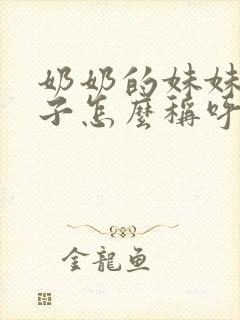 奶奶的妹妹
子怎麼稱呼
金龍魚